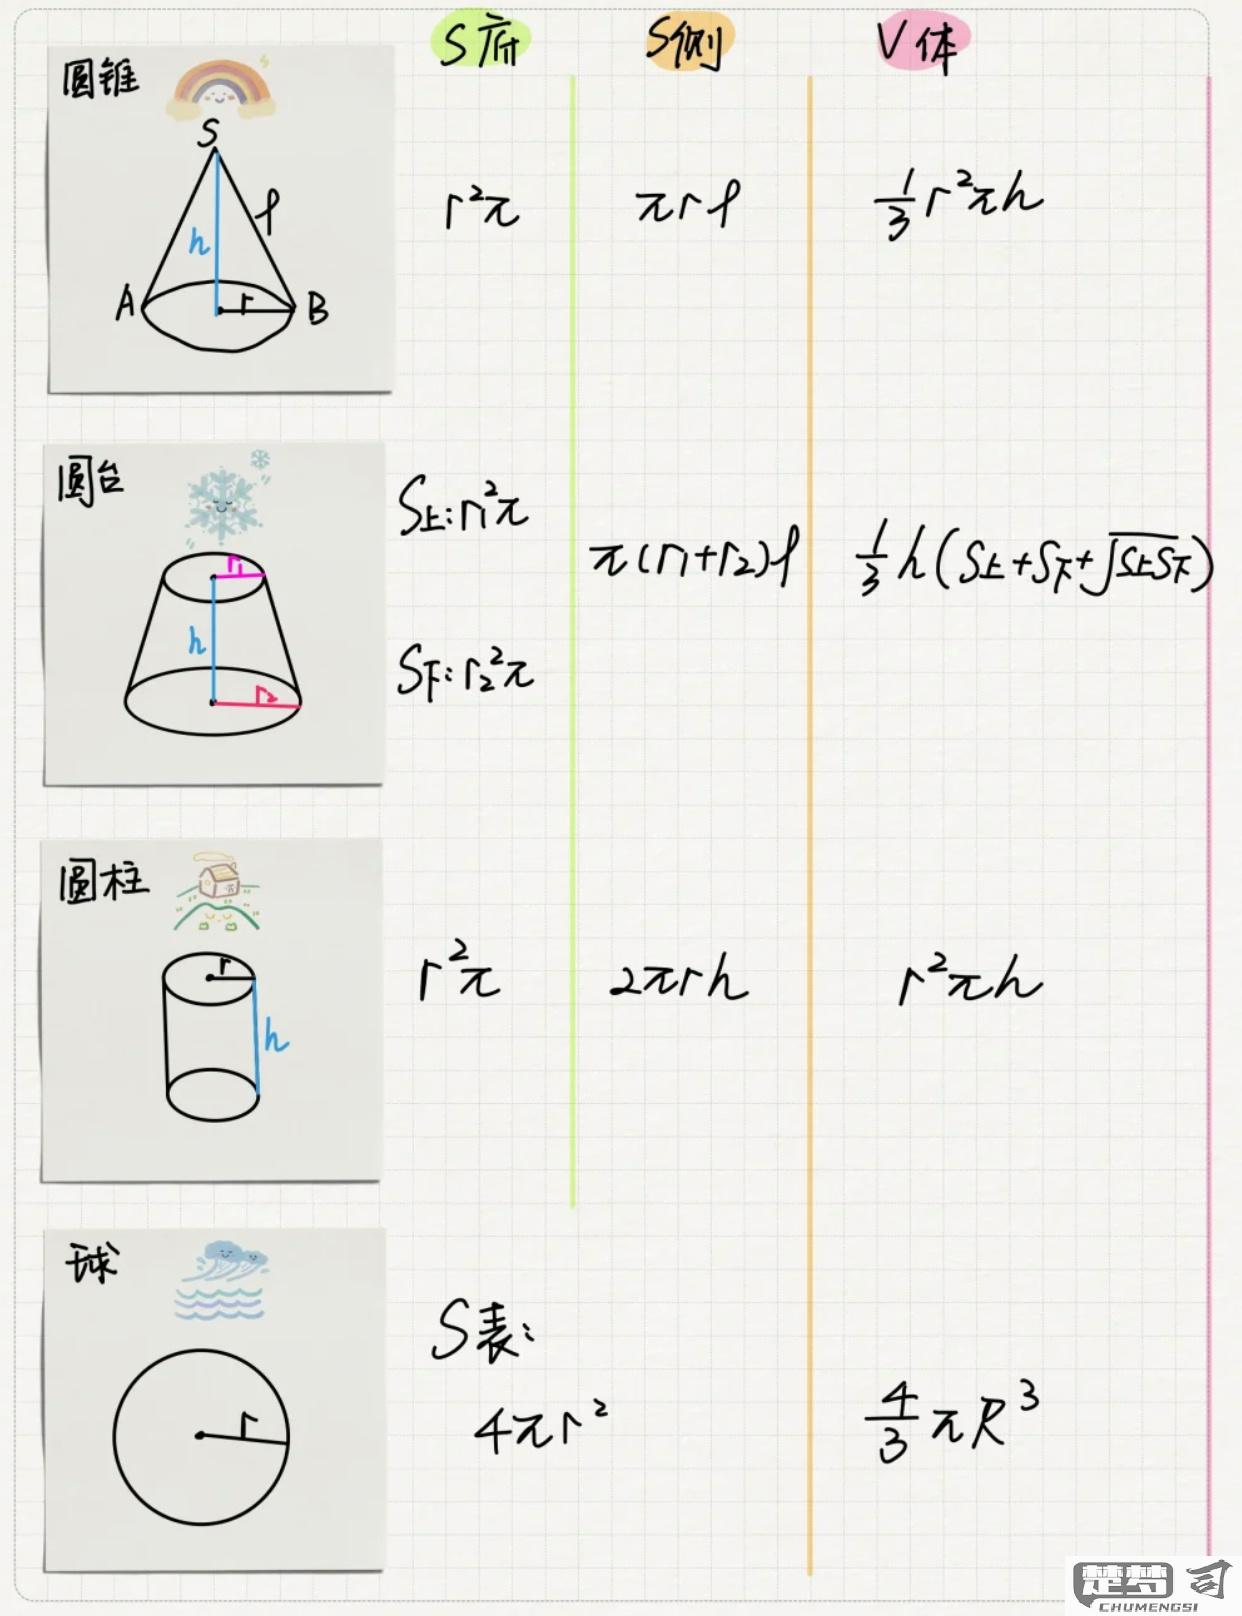 S底 S侧 V体
圆锥
S
l
h
A r B
r²π πrl ⅓r²πh
圆台
r₁
h
r₂
S上:r₁²π
S下:r₂²π
π(r₁+r₂)l
⅓h(S上+S下+√S上S下)
圆柱
r
h
r²π 2πrh r²πh
球
r
S表:
4πr²
4/3πR³
楚梦司
CHUMENGSI